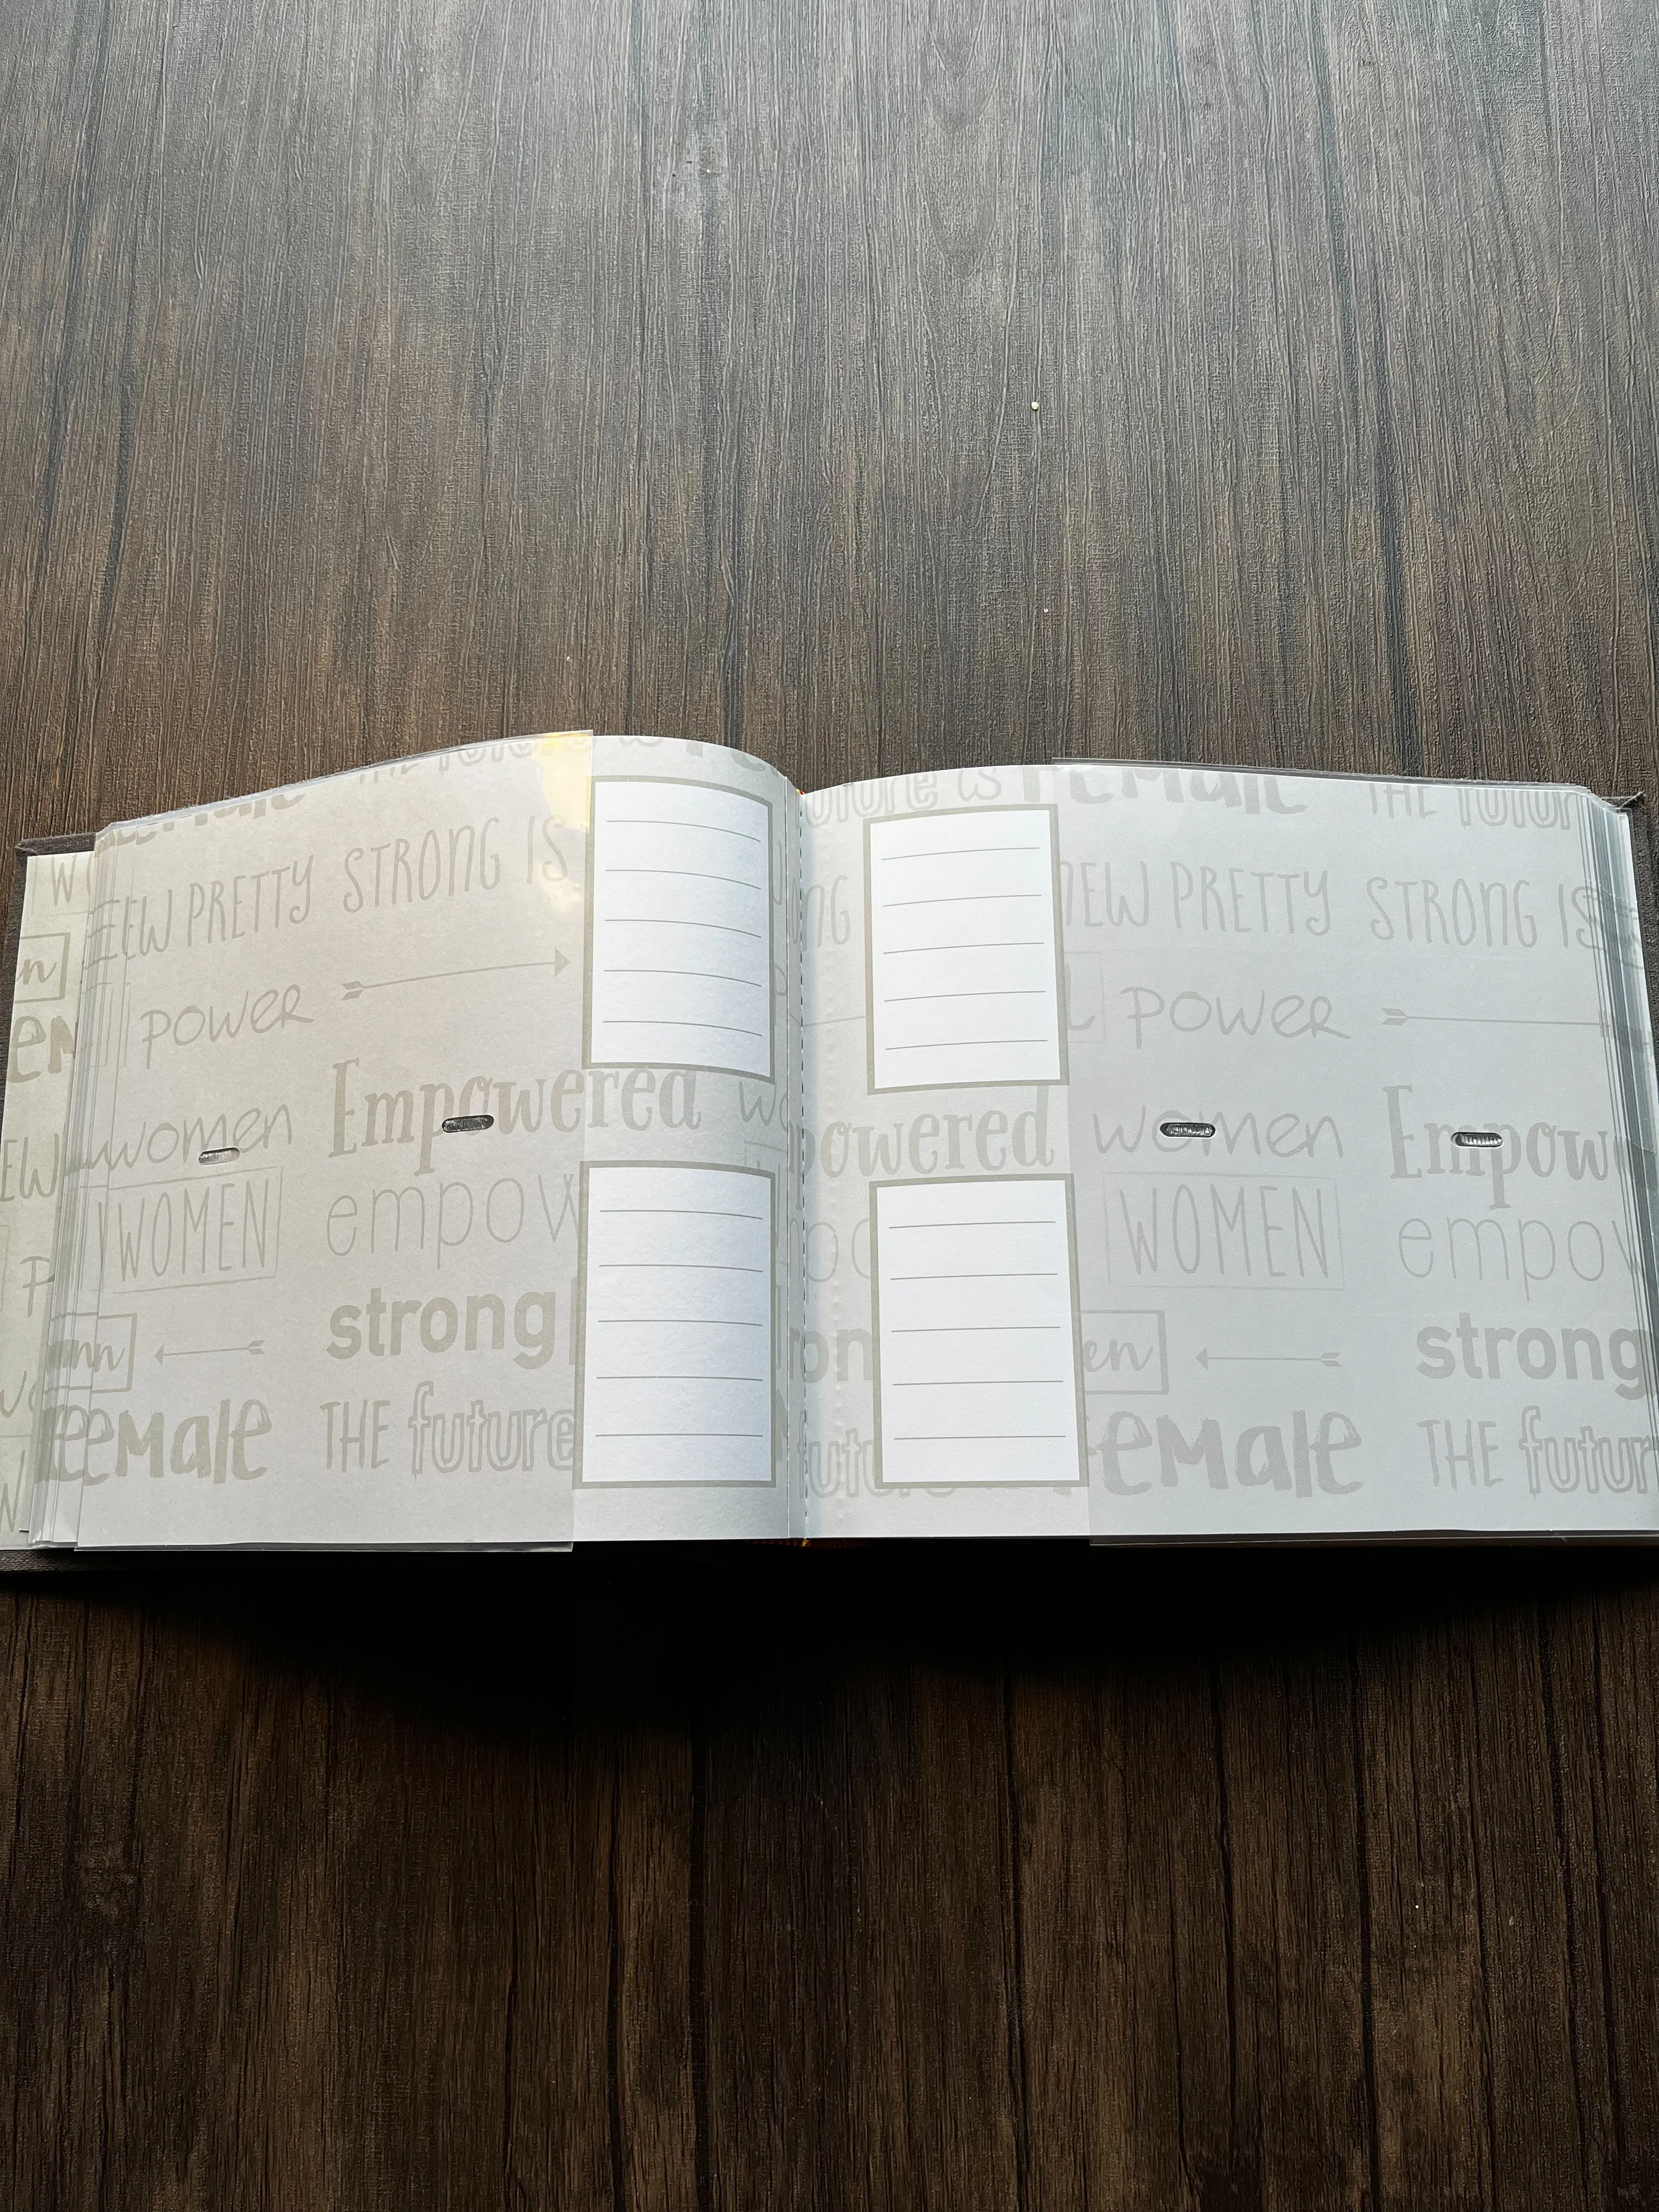 THE future is
Female
NEW PRETTY STRONG IS
POWER
Empowered
women
WOMEN
empow
strong
Female THE future
future is Female THE futur
NG NEW PRETTY STRONG IS
L POWER
powered women Empow
WOMEN empow
en strong
Female THE futur